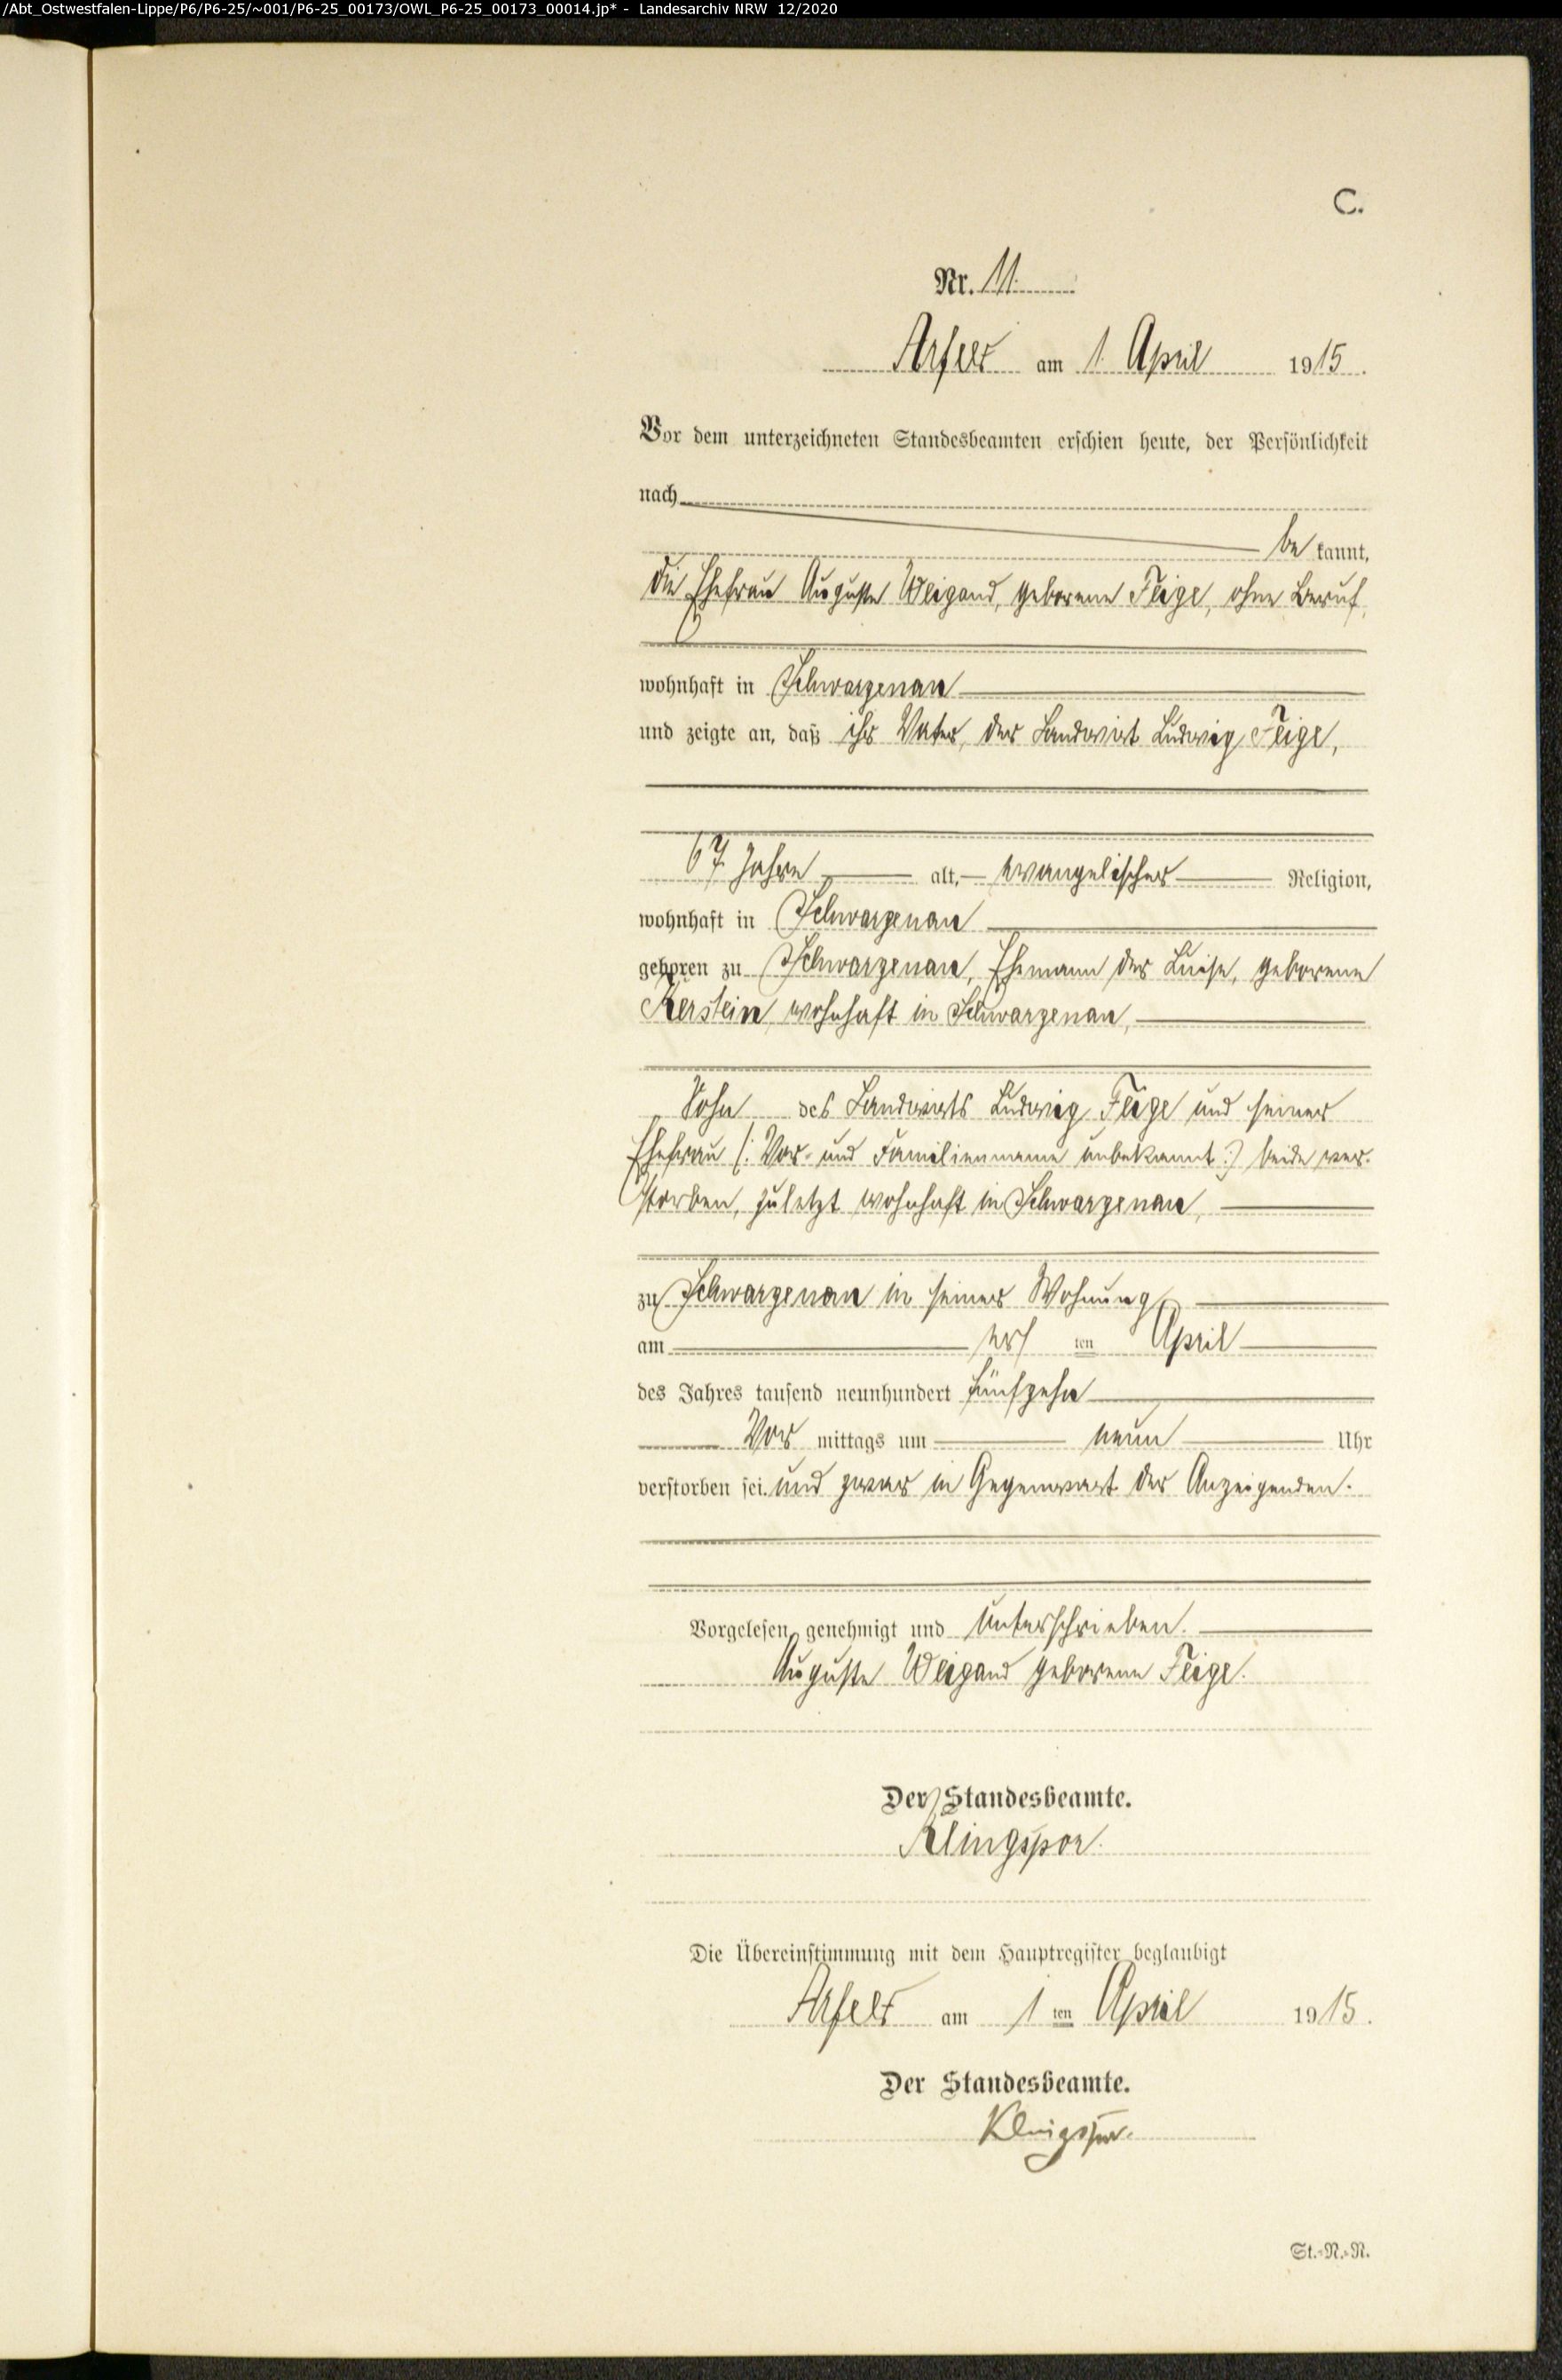 /Abt_Ostwestfalen-Lippe/P6/P6-25/~001/P6-25_00173/OWL_P6-25_00173_00014.jp* - Landesarchiv NRW 12/2020
C.
Nr. 11.
Arfeld am 1. April 1915.
Vor dem unterzeichneten Standesbeamten erschien heute, der Persönlichkeit
nach
be kannt,
die Ehefrau Auguste Weigand, geborene Feige, ohne Beruf,
wohnhaft in Schwarzenau
und zeigte an, daß ihr Vater, der Landwirt Ludwig Feige,
67 Jahre alt, evangelischer Religion,
wohnhaft in Schwarzenau
geboren zu Schwarzenau, Ehemann der Luise, geborene
Kerstein, wohnhaft in Schwarzenau,
Sohn des Landwirts Ludwig Feige und seiner
Ehefrau (: Vor- und Familienname unbekannt :) beide ver-
storben, zuletzt wohnhaft in Schwarzenau,
zu Schwarzenau in seiner Wohnung
am ers ten April
des Jahres tausend neunhundert fünfzehn
Vor mittags um neun Uhr
verstorben sei und zwar in Gegenwart der Anzeigenden.
Vorgelesen, genehmigt und unterschrieben.
Auguste Weigand geborene Feige.
Der Standesbeamte.
Klingspor.
Die Übereinstimmung mit dem Hauptregister beglaubigt
Arfeld am 1 ten April 1915.
Der Standesbeamte.
Klingspor.
St.-N.-R.